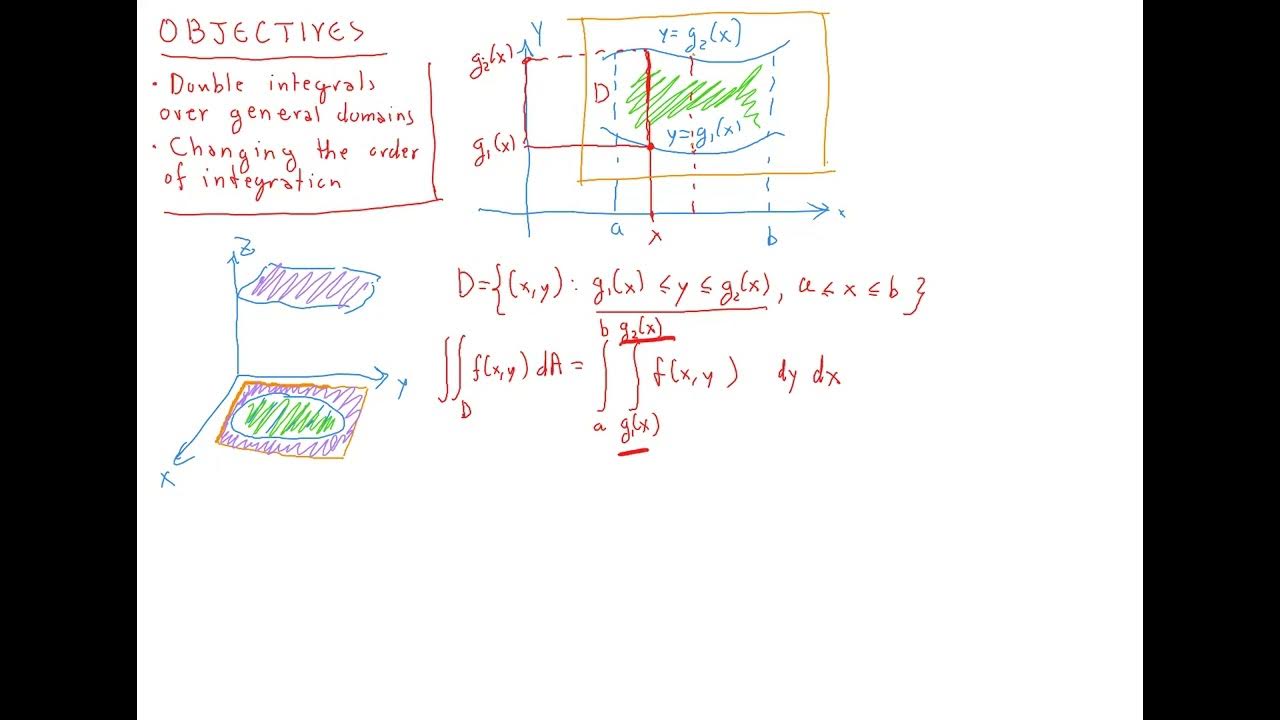 OBJECTIVES
• Double integrals
over general domains
• Changing the order
of integration
y
g₂(x)
y = g₂(x)
D
g₁(x)
y = g₁(x)
a
x
b
x
z
y
x
D = {(x,y) : g₁(x) ≤ y ≤ g₂(x), a ≤ x ≤ b}
∬_D f(x,y) dA = ∫_a^b ∫_{g₁(x)}^{g₂(x)} f(x,y) dy dx